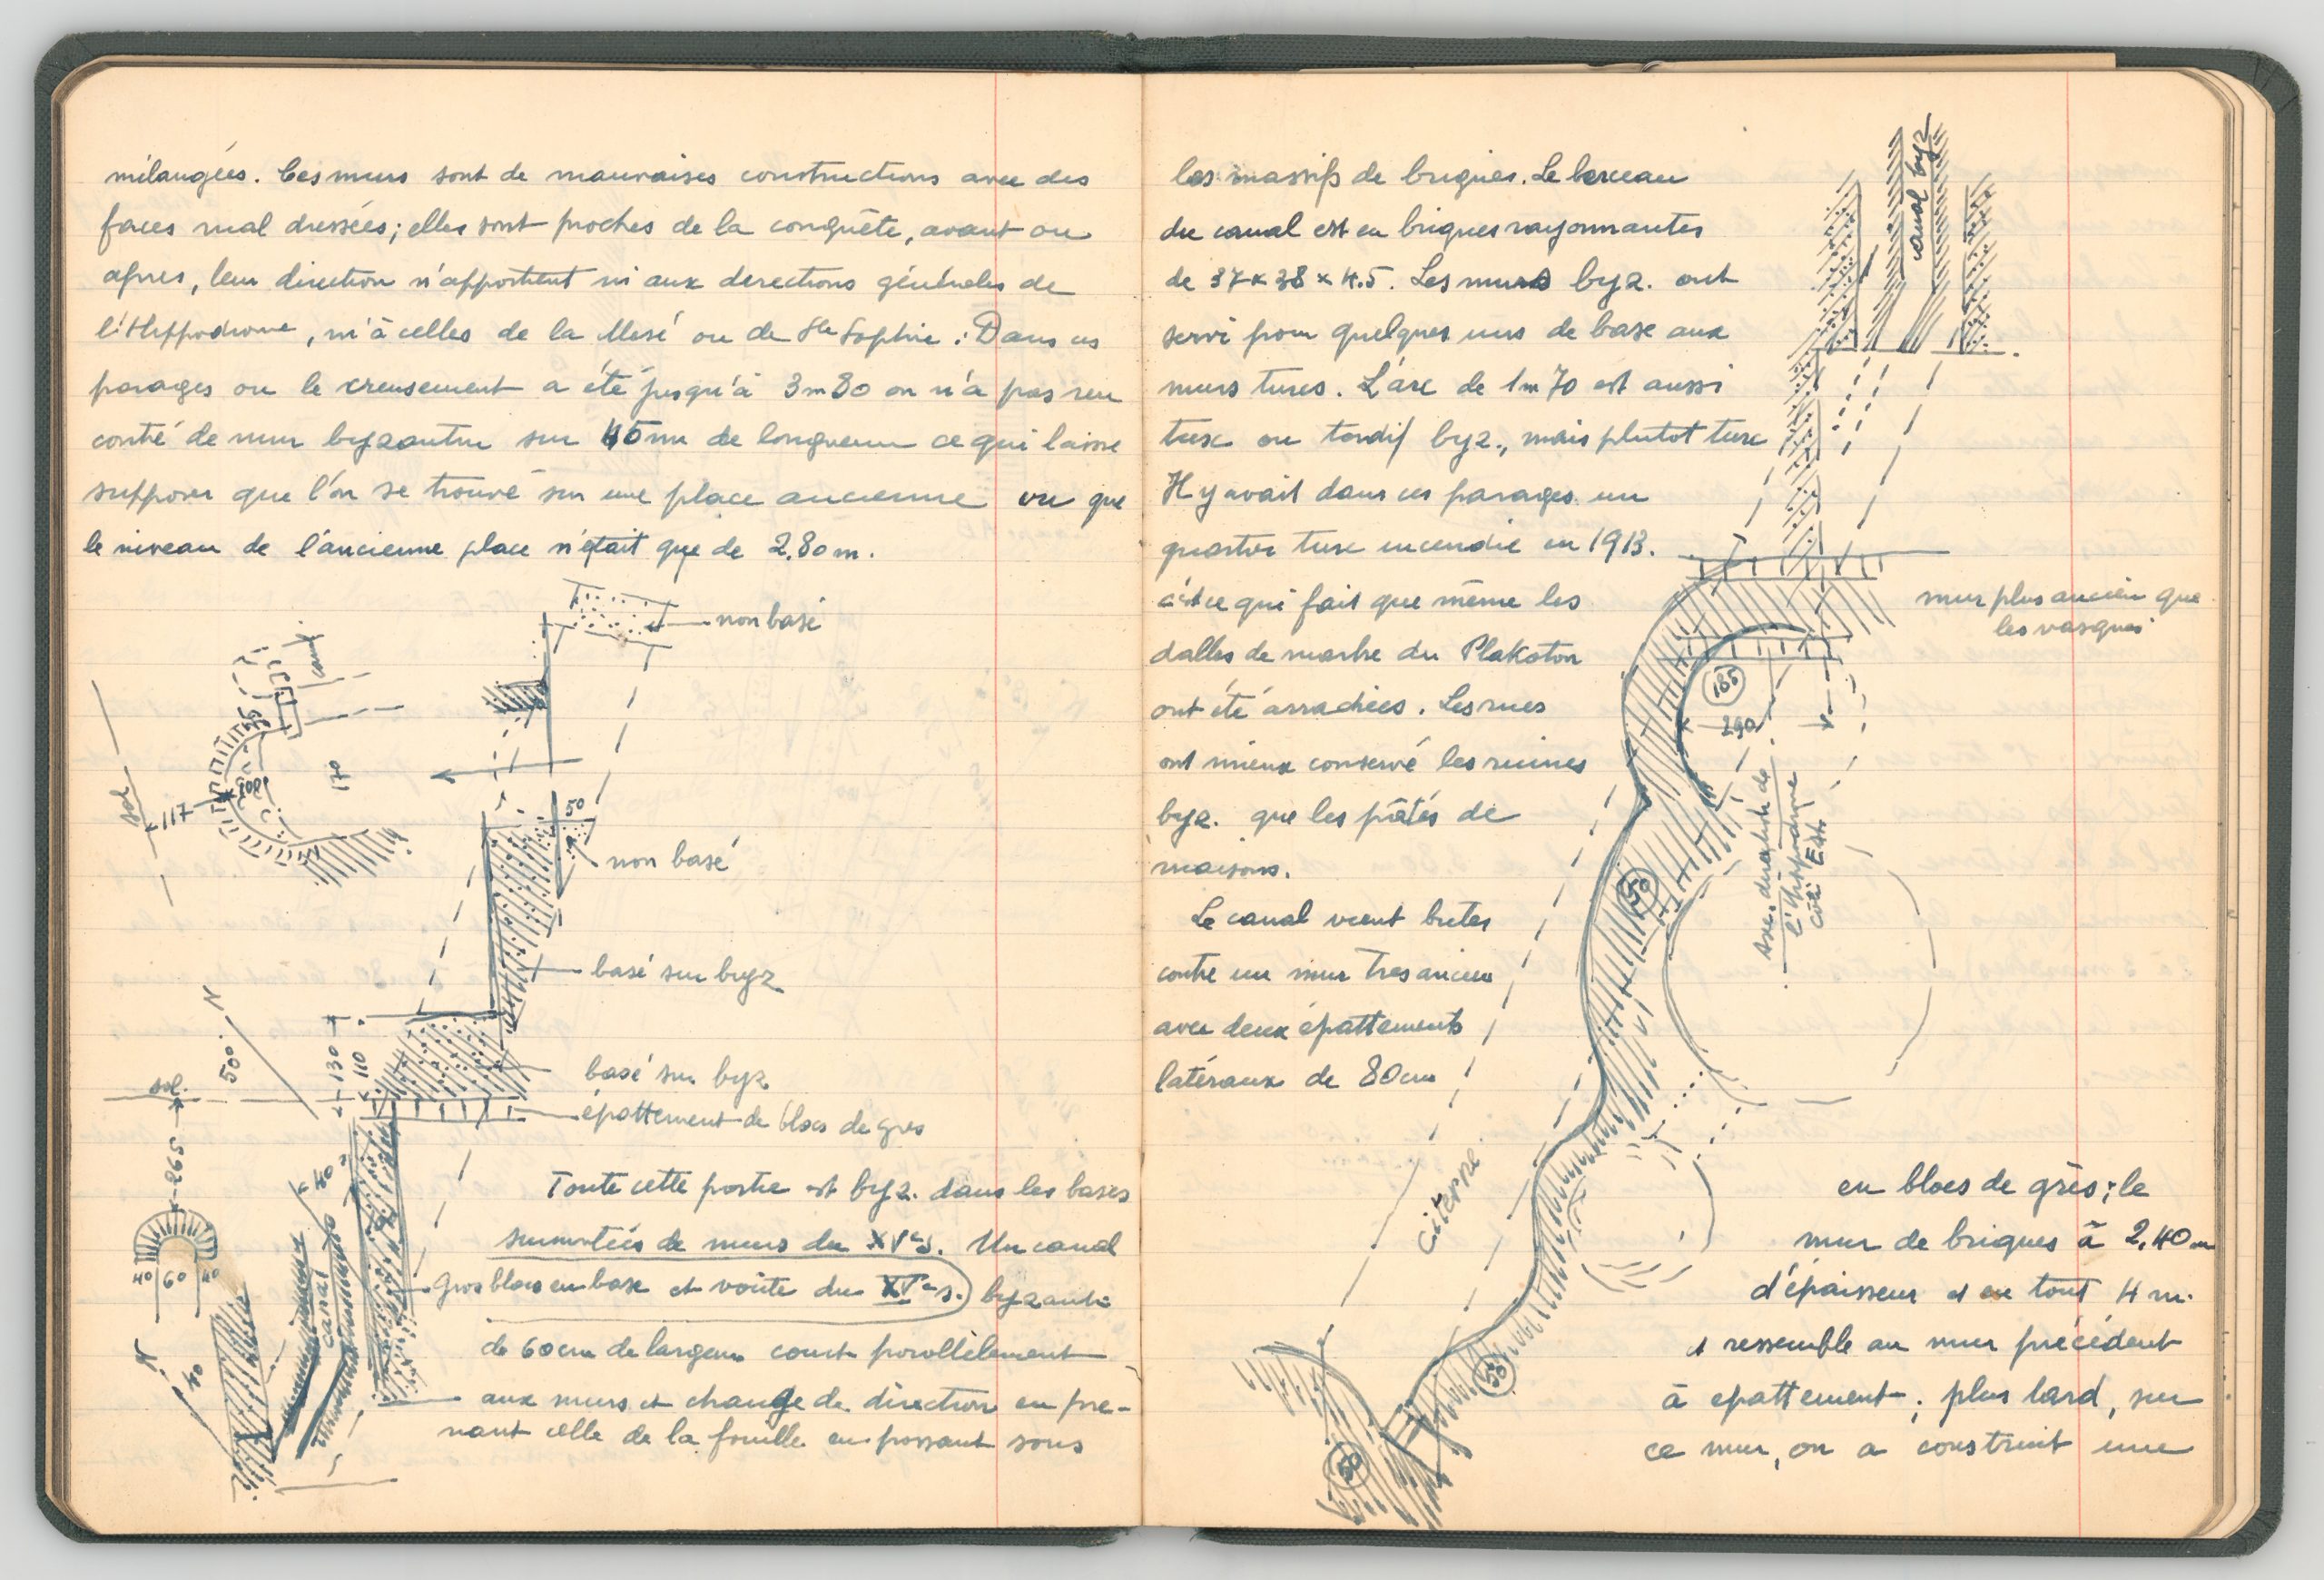 mélangées. Ces murs sont de mauvaises constructions avec des
faces mal dressées; elles sont proches de la conquête, avant ou
apres, leur direction n'appartient ni aux derections générales de
l'Hippodrome, ni à celles de la Mesé ou de Ste Sophie. Dans ces
parages ou le creusement a été jusqu'à 3m80 on n'a pas ren
contré de mur byzantin sur 45m de longueur ce qui laisse
supposer que l'on se trouve sur une place ancienne vu que
le niveau de l'ancienne place n'était que de 2.80m.
non basé
canal
170
sol
117
200
50
non basé
basé sur byz
N
500
130
110
sol.
basé sur byz
épattement de blocs de gres
265
40 60 40
canal
40
N
40
Toute cette partie est byz. dans les bases
surmontées de murs du XVe s. Un canal
Gros blocs en base et voûte du XVe s.) byzantin
de 60cm de largeur court parallèlement
aux murs et change de direction en pre-
nant celle de la fouille en passant sous
les massifs de briques. Le berceau
du canal est en briques rayonnantes
de 37 x 38 x 4.5. Les murs byz. ont
servi pour quelques uns de base aux
murs turcs. L'arc de 1m70 est aussi
turc ou tardif byz., mais plutot turc
Il y avait dans ces parages un
quartier turc incendié en 1913.
c'est ce qui fait que même les
dalles de marbre du Plakoton
ont été arrachées. Les rues
ont mieux conservé les ruines
byz. que les pâtés de
maisons.
Le canal vient buter
contre un mur tres ancien
avec deux épattements
latéraux de 80cm
canal byz
mur plus ancien que
les vasques
185
290
Axe du
l'Hippodrome
côté Est.
50
Citerne
50
50
en blocs de grès; le
mur de briques à 2,40m
d'épaisseur et en tout 4m.
et ressemble au mur précédent
à epattement; plus tard, sur
ce mur, on a construit une